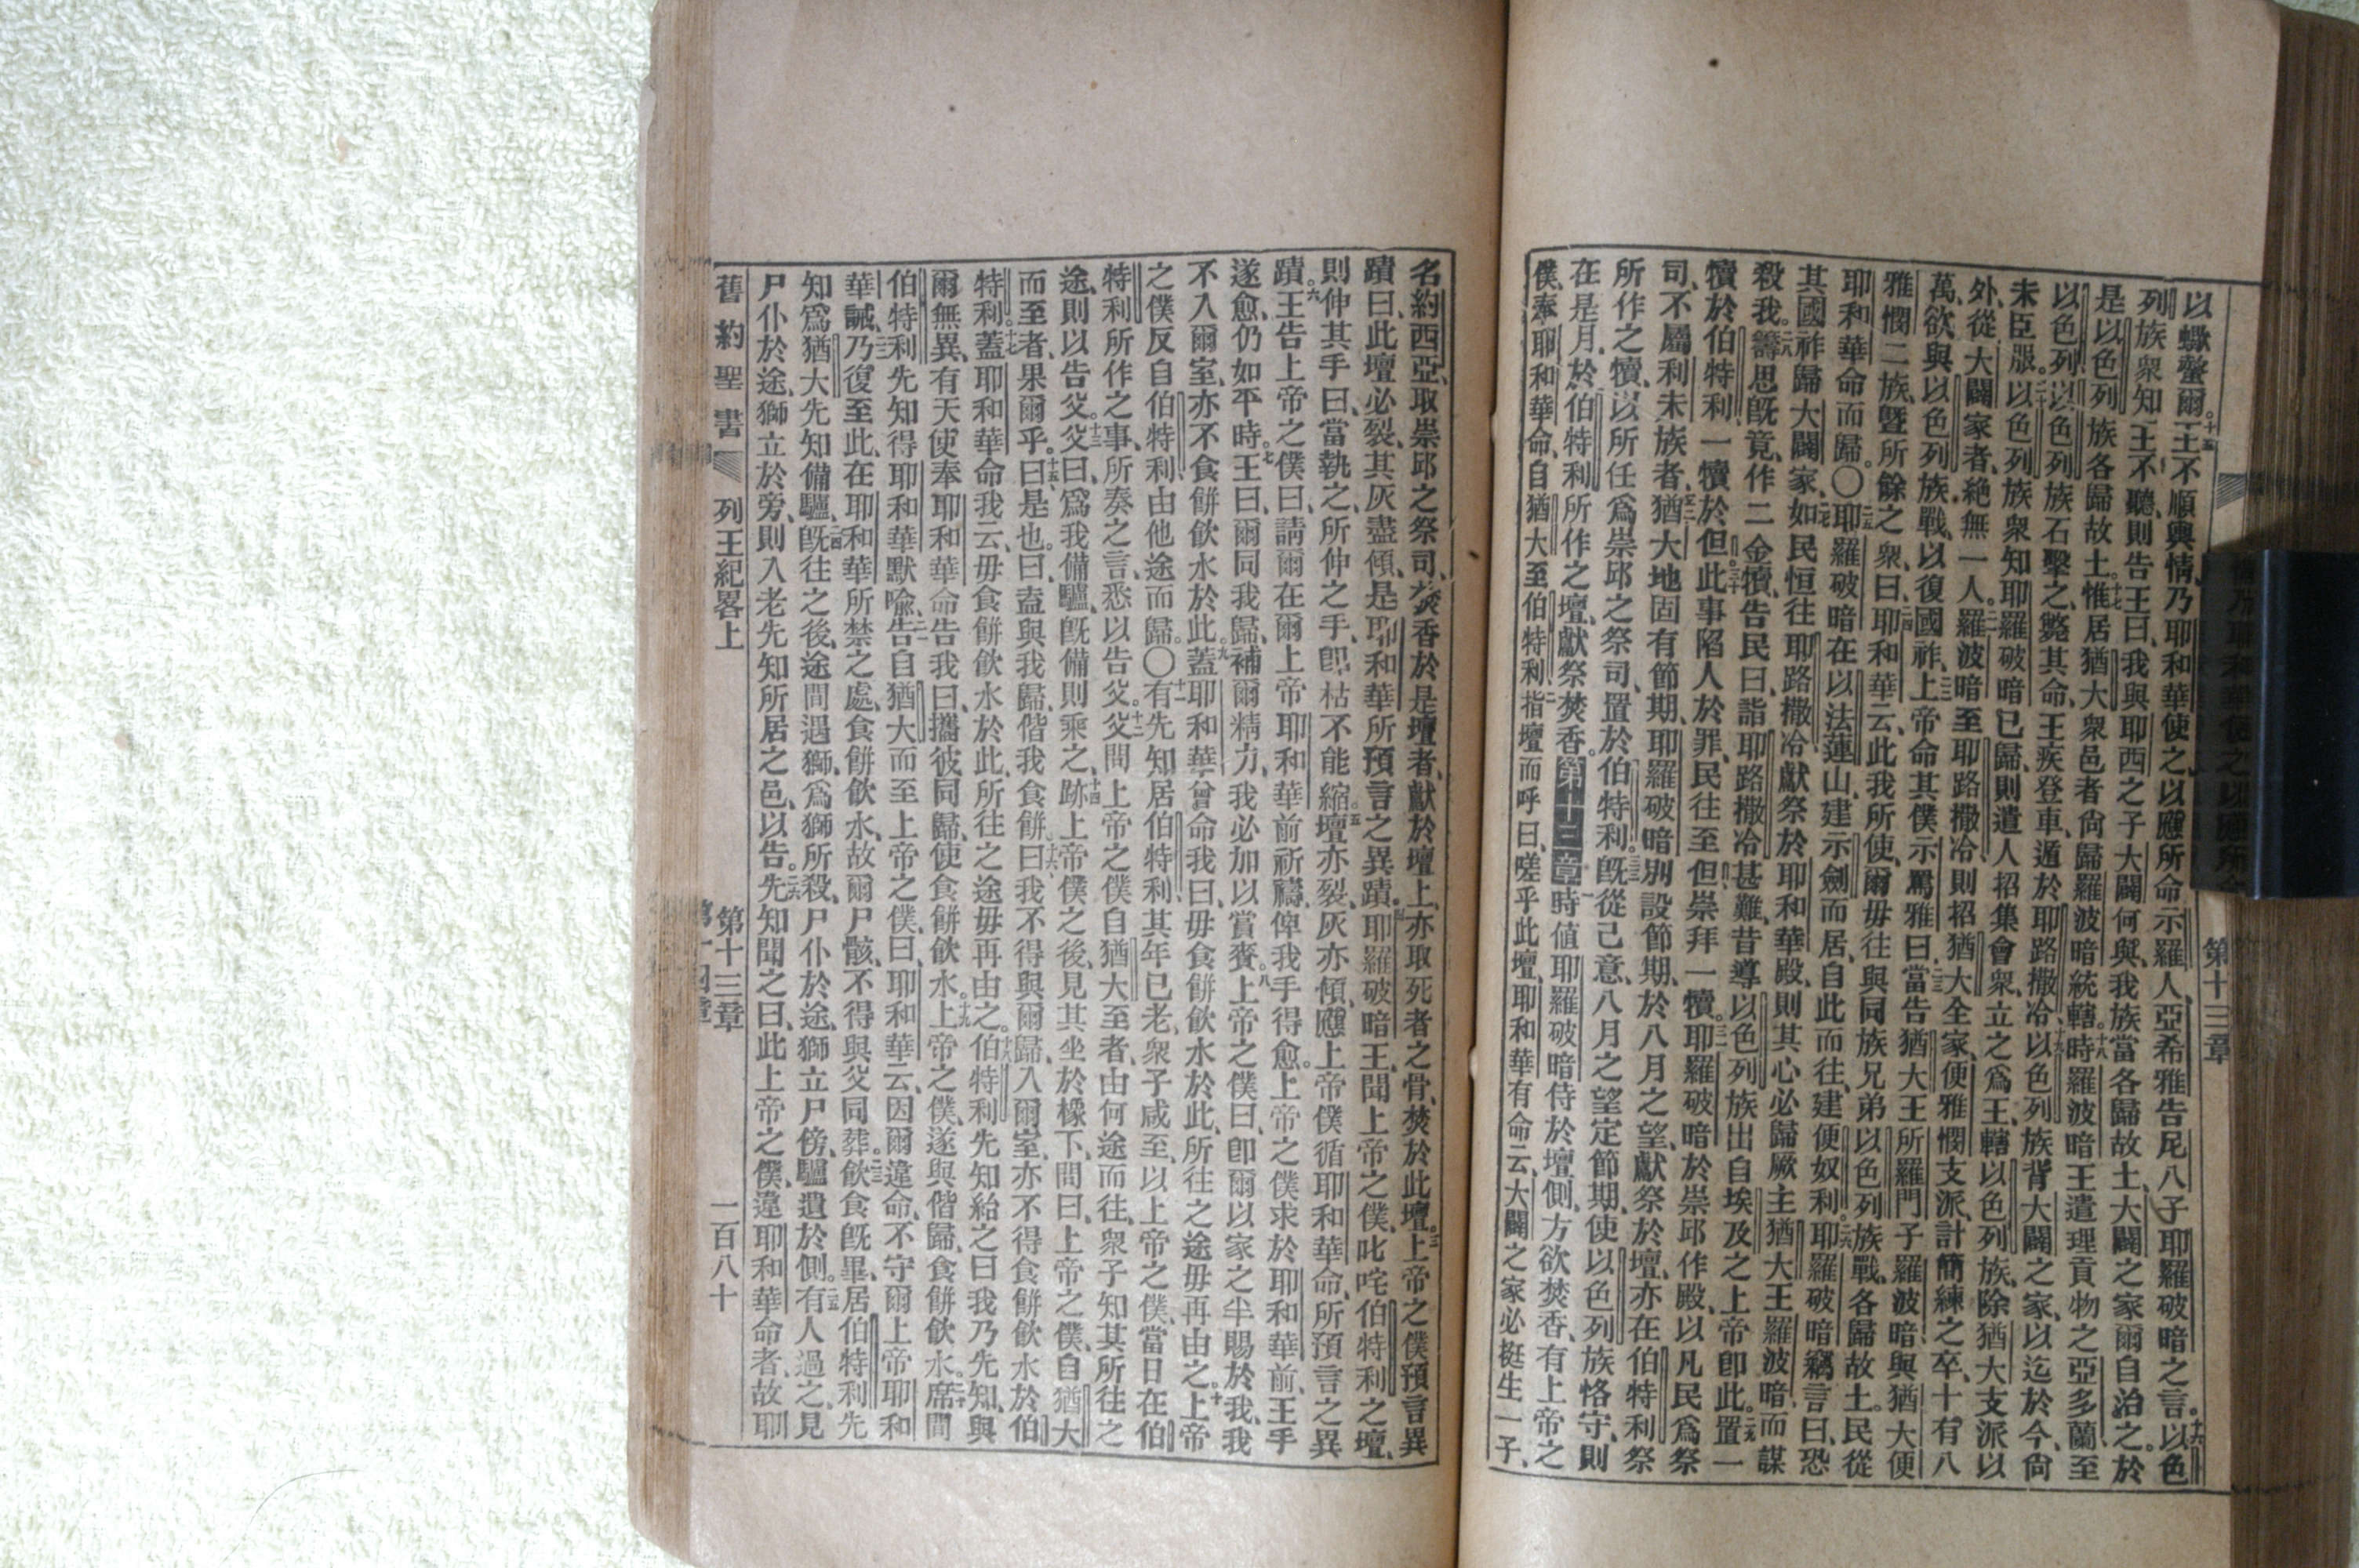 以蠍螫爾。十五王不順輿情、乃耶和華使之、以應所命示羅人、亞希雅告尼八子、耶羅破暗之言。十六以色
列族衆知王不聽、則告王曰、我與耶西之子大闢何與、我族當各歸故土、大闢之家爾自治之。於
是以色列族各歸故土。十七惟居猶大衆邑者、尙歸羅波暗統轄。十八時羅波暗王遣理貢物之亞多蘭至
以色列、以色列族石擊之、斃其命、王疾登車、遁於耶路撒冷。十九以色列族背大闢之家、以迄於今、尙
未臣服。二十以色列族衆知耶羅破暗已歸、則遣人招集會衆、立之爲王、轄以色列族、除猶大支派以
外、從大闢家者、絶無一人。二一羅波暗至耶路撒冷、則招猶大全家、便雅憫支派、計簡練之卒、十有八
萬、欲與以色列族戰、以復國祚。二二上帝命其僕示罵雅曰、二三當告猶大王所羅門子羅波暗、與猶大便
雅憫二族、曁所餘之衆曰、二四耶和華云、此我所使、爾毋往與同族兄弟以色列族戰、各歸故土。民從
耶和華命而歸。〇二五耶羅破暗在以法蓮山、建示劍而居、自此而往、建便奴利。二六耶羅破暗竊言曰、恐
其國祚歸大闢家、二七如民恒往耶路撒冷、獻祭於耶和華殿、則其心必歸厥主猶大王羅波暗、而謀
殺我。二八籌思旣竟、作二金犢、告民曰、詣耶路撒冷甚難、昔導以色列族出自埃及之上帝卽此。二九置一
犢於伯特利、一犢於但。三十此事陷人於罪、民往至但、崇拜一犢。三一耶羅破暗於崇邱作殿、以凡民爲祭
司、不屬利未族者、三二猶大地固有節期、耶羅破暗別設節期、於八月之望、獻祭於壇、亦在伯特利、祭
所作之犢、以所任爲崇邱之祭司、置於伯特利。三三旣從己意、八月之望定節期、使以色列族恪守、則
在是月、於伯特利所作之壇、獻祭焚香。第十三章一時值耶羅破暗侍於壇側、方欲焚香、有上帝之
僕、奉耶和華命、自猶大至伯特利、二指壇而呼曰、嗟乎此壇、耶和華有命云、大闢之家、必挺生一子、
第十三章
名約西亞、取崇邱之祭司、焚香於是壇者、獻於壇上、亦取死者之骨、焚於此壇。三上帝之僕預言異
蹟曰、此壇必裂、其灰盡傾、是耶和華所預言之異蹟。四耶羅破暗王聞上帝之僕、叱咤伯特利之壇、
則伸其手曰、當執之、所伸之手、卽枯不能縮。五壇亦裂、灰亦傾、應上帝僕循耶和華命、所預言之異
蹟。六王告上帝之僕曰、請爾在爾上帝耶和華前祈禱、俾我手得愈。上帝之僕求於耶和華前、王手
遂愈、仍如平時。七王曰、爾同我歸、補爾精力、我必加以賞賚。八上帝之僕曰、卽爾以家之半賜於我、我
不入爾室、亦不食餅飮水於此。九蓋耶和華曾命我曰、毋食餅飮水於此、所往之途毋再由之。十上帝
之僕反自伯特利、由他途而歸。〇十一有先知居伯特利、其年已老、衆子咸至、以上帝之僕、當日在伯
特利所作之事、所奏之言、悉以告父。十二父問上帝之僕自猶大至者、由何途而往、衆子知其所往之
途、則以告父。十三父曰、爲我備驢、旣備則乘之、十四跡上帝僕之後、見其坐於橡下、問曰、上帝之僕、自猶大
而至者、果爾乎。曰是也。十五曰、盍與我歸、偕我食餅。十六曰、我不得與爾歸、入爾室、亦不得食餅飮水於伯
特利。十七蓋耶和華命我云、毋食餅飮水於此、所往之途毋再由之。十八伯特利先知紿之曰、我乃先知、與
爾無異、有天使奉耶和華命告我曰、攜彼同歸、使食餅飮水。十九上帝之僕、遂與偕歸、食餅飮水。二十席間
伯特利先知得耶和華默喩、二一告自猶大而至上帝之僕曰、耶和華云、因爾違命、不守爾上帝耶和
華誡、二二乃復至此、在耶和華所禁之處、食餅飮水、故爾尸骸、不得與父同葬。二三飮食旣畢、居伯特利先
知爲猶大先知備驢、二四旣往之後、途間遇獅、爲獅所殺、尸仆於途、獅立尸傍、驢遺於側。二五有人過之、見
尸仆於途、獅立於旁、則入老先知所居之邑、以告。二六先知聞之曰、此上帝之僕、違耶和華命者、故耶
舊約聖書 列王紀畧上 第十三章 一百八十